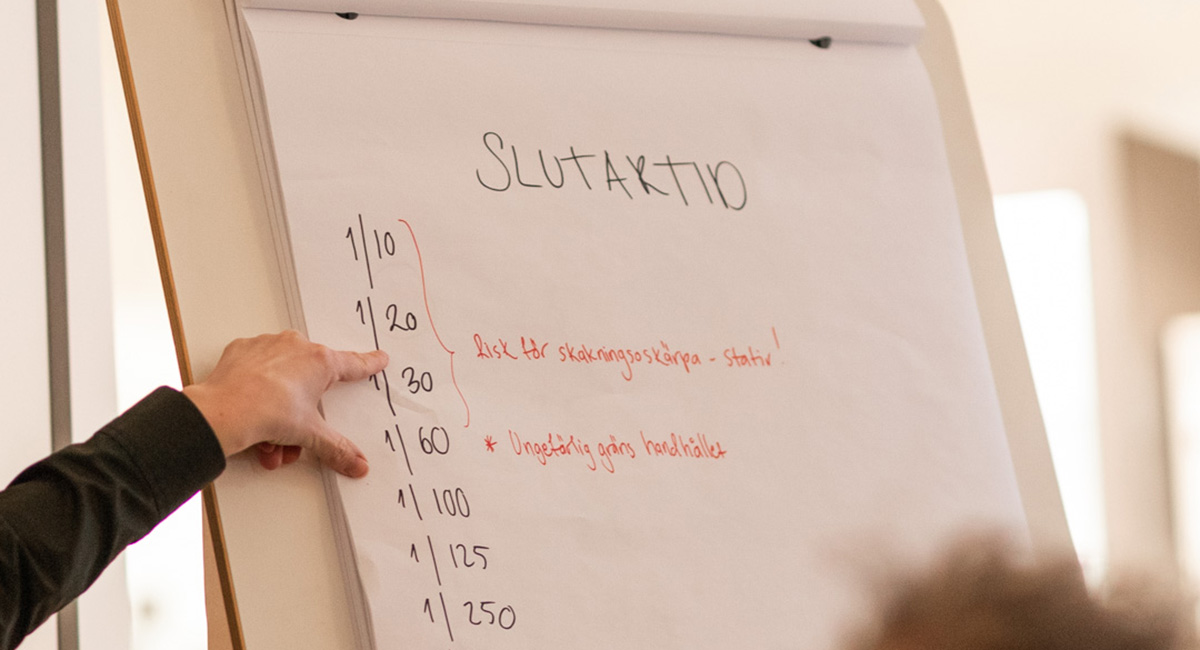 SLUTARTID
1/10
1/20
Risk för skakningsoskärpa - stativ!
1/30
1/60 * Ungefärlig gräns handhållet
1/100
1/125
1/250